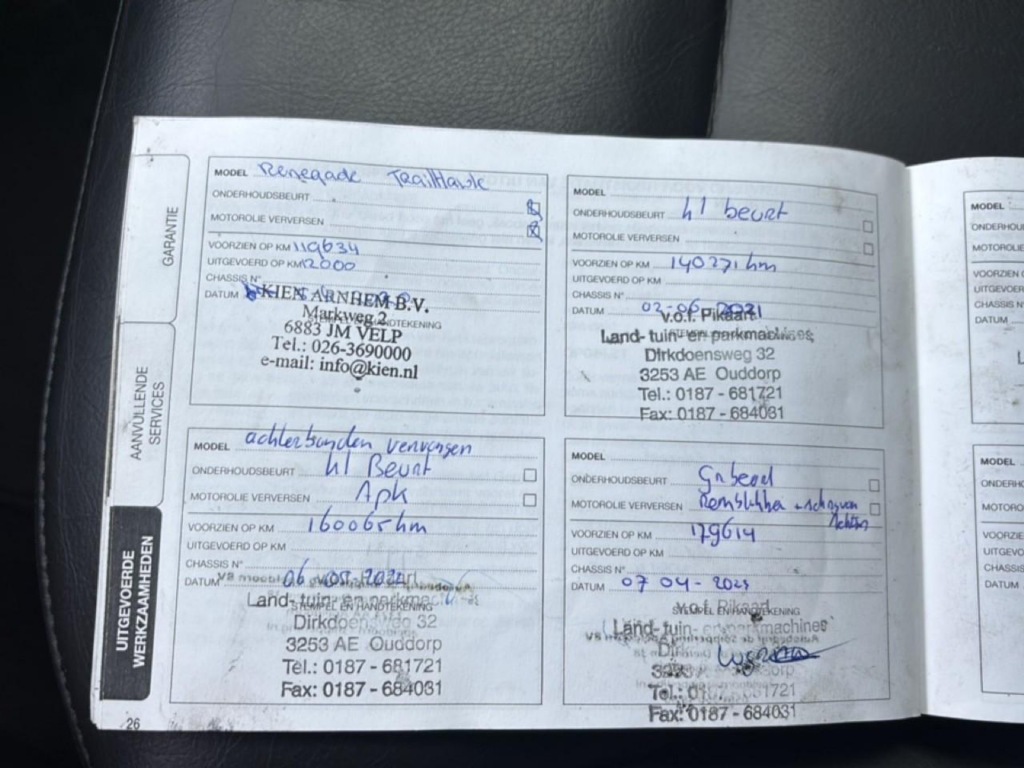 GARANTIE
AANVULLENDE
SERVICES
UITGEVOERDE
WERKZAAMHEDEN
26
MODEL Renegade TrailHawk
ONDERHOUDSBEURT
MOTOROLIE VERVERSEN
VOORZIEN OP KM 119634
UITGEVOERD OP KM 12000
CHASSIS N°
DATUM
KIEN ARNHEM B.V.
Markweg 2
STEMPEL EN HANDTEKENING
6883 JM VELP
Tel.: 026-3690000
e-mail: info@kien.nl
MODEL
ONDERHOUDSBEURT kl beurt
MOTOROLIE VERVERSEN
VOORZIEN OP KM 140271 km
UITGEVOERD OP KM
CHASSIS N°
DATUM 02-06-2021
v.o.f. Pikaart
Land- tuin- en parkmachines
Dirkdoensweg 32
3253 AE Ouddorp
Tel.: 0187 - 681721
Fax: 0187 - 684031
MODEL achterbanden vervangen
ONDERHOUDSBEURT kl Beurt
MOTOROLIE VERVERSEN Apk
VOORZIEN OP KM 160065 km
UITGEVOERD OP KM
CHASSIS N°
DATUM 06
Land- tuin- en parkmachines
STEMPEL EN HANDTEKENING
Dirkdoensweg 32
3253 AE Ouddorp
Tel.: 0187 - 681721
Fax: 0187 - 684031
MODEL
ONDERHOUDSBEURT
MOTOROLIE VERVERSEN
VOORZIEN OP KM 179614
UITGEVOERD OP KM
CHASSIS N°
DATUM 07 04 -
v.o.f. Pikaart
STEMPEL EN HANDTEKENING
Land- tuin- en parkmachines
Tel.: 0187
Fax: 0187 - 684031
MODEL
MOTOROLIE
VOORZIEN
UITGEVOERD
CHASSIS N
DATUM
MODEL
DATUM